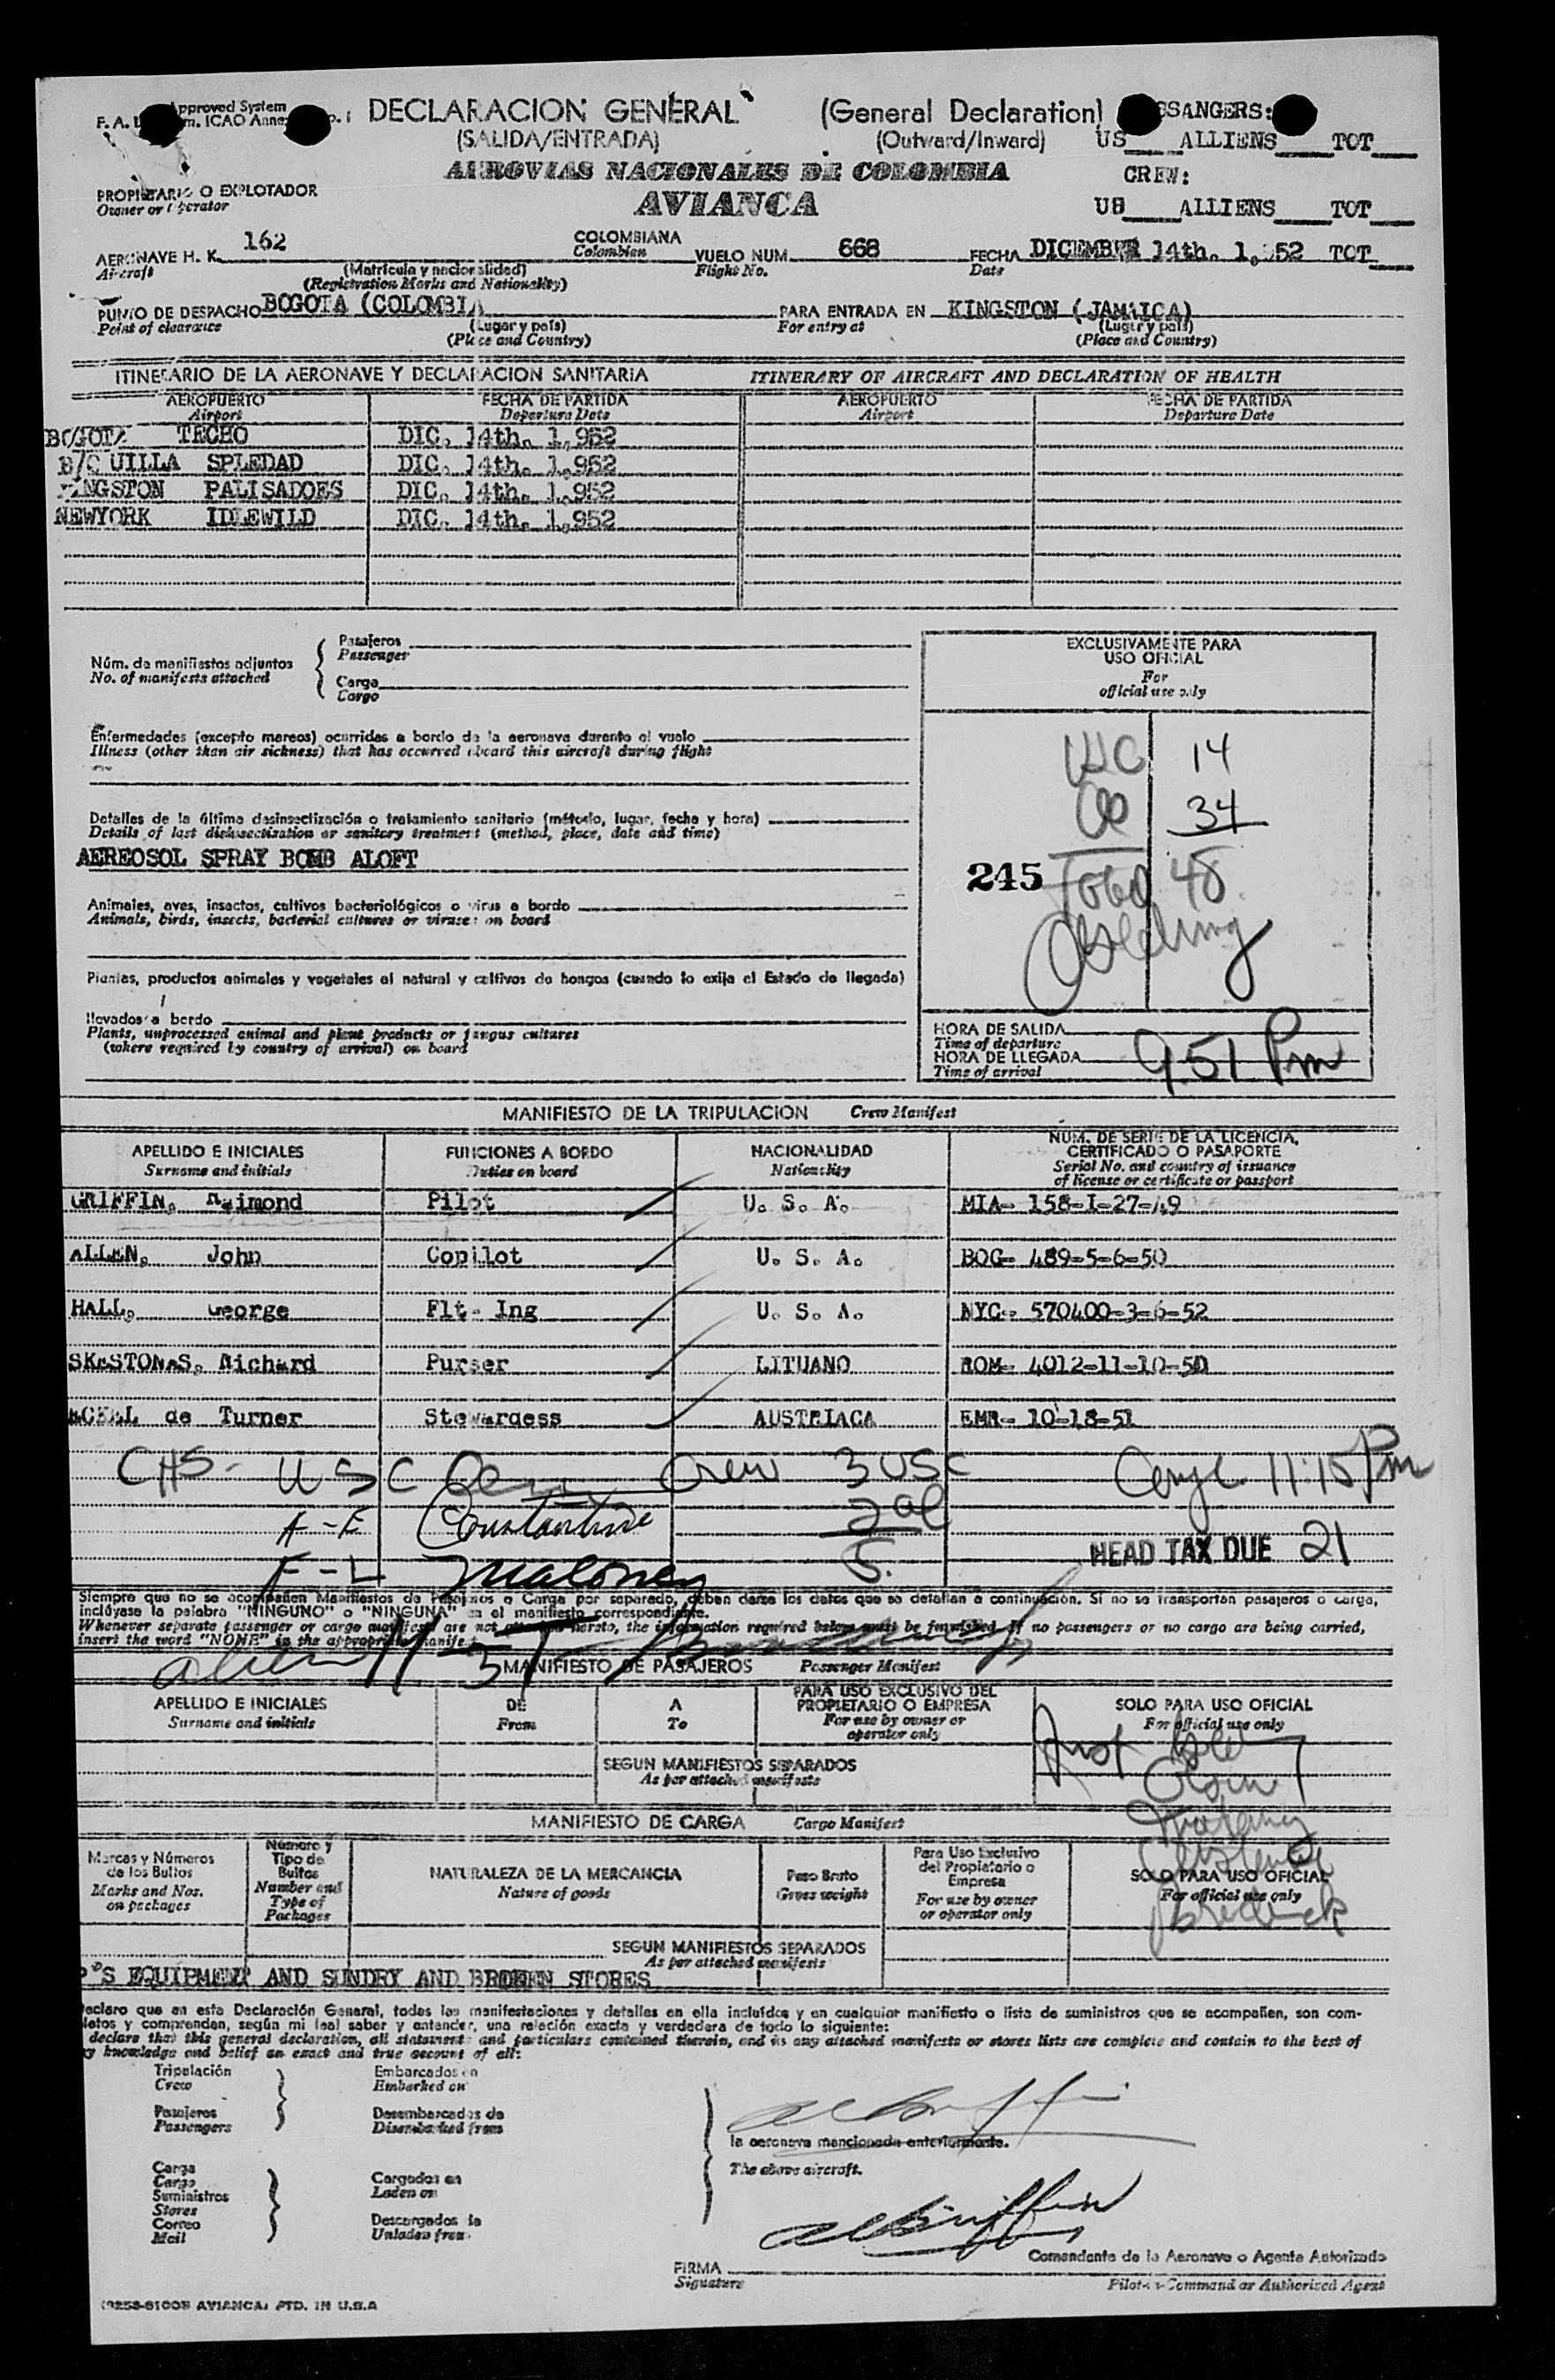 Approved System
F. A. L. ICAO Anne
DECLARACION GENERAL (General Declaration)
(SALIDA/ENTRADA) (Outward/Inward)
SSANGERS:
US____ALLIENS____TOT____
AEROVIAS NACIONALES DE COLOMBIA
AVIANCA
CREW:
US____ALLIENS____TOT____
PROPIETARIO O EXPLOTADOR
Owner or Operator
AERONAVE H. K. 162 COLOMBIANA VUELO NUM. 668 FECHA DICEMBER 14th. 1,952 TOT____
Aircraft Colombian Flight No. Date
(Matrícula y nacionalidad)
(Registration Marks and Nationality)
PUNTO DE DESPACHO BOGOTA (COLOMBIA PARA ENTRADA EN KINGSTON (JAMAICA)
Point of clearance (Lugar y país) For entry at (Lugar y país)
(Place and Country) (Place and Country)
ITINERARIO DE LA AERONAVE Y DECLARACION SANITARIA ITINERARY OF AIRCRAFT AND DECLARATION OF HEALTH
AEROPUERTO FECHA DE PARTIDA AEROPUERTO FECHA DE PARTIDA
Airport Departure Date Airport Departure Date
BOGOTA TECHO DIC. 14th. 1,952
B/QUILLA SPLEDAD DIC. 14th. 1,952
KINGSTON PALISADOES DIC. 14th. 1,952
NEWYORK IDLEWILD DIC. 14th. 1,952
Núm. de manifiestos adjuntos
No. of manifests attached
Pasajeros
Passenger
Carga
Cargo
EXCLUSIVAMENTE PARA
USO OFICIAL
For
official use only
Enfermedades (excepto mareos) ocurridas a bordo de la aeronave durante el vuelo
Illness (other than air sickness) that has occurred aboard this aircraft during flight
Detalles de la última desinsectización o tratamiento sanitario (método, lugar, fecha y hora)
Details of last disinsectization or sanitary treatment (method, place, date and time)
AEREOSOL SPRAY BOMB ALOFT
14
34
245 Total 48
Animales, aves, insectos, cultivos bacteriológicos o virus a bordo
Animals, birds, insects, bacterial cultures or viruses on board
Plantas, productos animales y vegetales al natural y cultivos de hongos (cuando lo exija el Estado de llegada)
llevados a bordo
Plants, unprocessed animal and plant products or fungus cultures
(where required by country of arrival) on board
HORA DE SALIDA
Time of departure
HORA DE LLEGADA 9 51 Pm
Time of arrival
MANIFIESTO DE LA TRIPULACION Crew Manifest
APELLIDO E INICIALES FUNCIONES A BORDO NACIONALIDAD NUM. DE SERIE DE LA LICENCIA,
CERTIFICADO O PASAPORTE
Surname and initials Duties on board Nationality Serial No. and country of issuance
of license or certificate or passport
GRIFFIN, Raimond Pilot U. S. A. MIA- 158-I-27-49
ALLEN, John Copilot U. S. A. BOG- 489-5-6-50
HALL, George Flt- Ing U. S. A. NYC- 570400-3-6-52
SKASTONAS, Richard Purser LITUANO ROM- 4012-11-10-50
ECKEL de Turner Stewardess AUSTRIACA EMR- 10-18-51
CHS- USC Crew 3 USC 11:15 Pm
A-E Constantine 2 al
F-L Maloney 5.
HEAD TAX DUE 21
Siempre que no se acompañen Manifiestos de Pasajeros o Carga por separado, deben darse los datos que se detallan a continuación. Si no se transportan pasajeros o carga,
inclúyase la palabra "NINGUNO" o "NINGUNA" en el manifiesto correspondiente.
Whenever separate passenger or cargo manifests are not attached hereto, the information required below must be furnished. If no passengers or no cargo are being carried,
insert the word "NONE" in the appropriate manifest.
MANIFIESTO DE PASAJEROS Passenger Manifest
APELLIDO E INICIALES DE A PARA USO EXCLUSIVO DEL
PROPIETARIO O EMPRESA SOLO PARA USO OFICIAL
Surname and initials From To For use by owner or
operator only For official use only
SEGUN MANIFIESTOS SEPARADOS
As per attached manifests
MANIFIESTO DE CARGA Cargo Manifest
Marcas y Números
de los Bultos
Marks and Nos.
on packages
Número y
Tipo de
Bultos
Number and
Type of
Packages
NATURALEZA DE LA MERCANCIA
Nature of goods
Peso Bruto
Gross weight
Para Uso Exclusivo
del Propietario o
Empresa
For use by owner
or operator only
SOLO PARA USO OFICIAL
For official use only
SEGUN MANIFIESTOS SEPARADOS
As per attached manifests
P'S EQUIPMENT AND SUNDRY AND BROKEN STORES
eclaro que en esta Declaración General, todas las manifestaciones y detalles en ella incluídos y en cualquier manifiesto o lista de suministros que se acompañen, son com-
letos y comprenden, según mi leal saber y entender, una relación exacta y verdadera de todo lo siguiente:
declare that this general declaration, all statements and particulars contained therein, and in any attached manifests or stores lists are complete and contain to the best of
y knowledge and belief an exact and true account of all:
Tripulación
Crew
Pasajeros
Passengers
Embarcados en
Embarked on
Desembarcados de
Disembarked from
la aeronave mencionada anteriormente.
The above aircraft.
Carga
Cargo
Suministros
Stores
Correo
Mail
Cargados en
Laden on
Descargados de
Unladen from
FIRMA
Signature
Comandante de la Aeronave o Agente Autorizado
Pilot-in-Command or Authorized Agent
AVIANCA, PTD. IN U.S.A